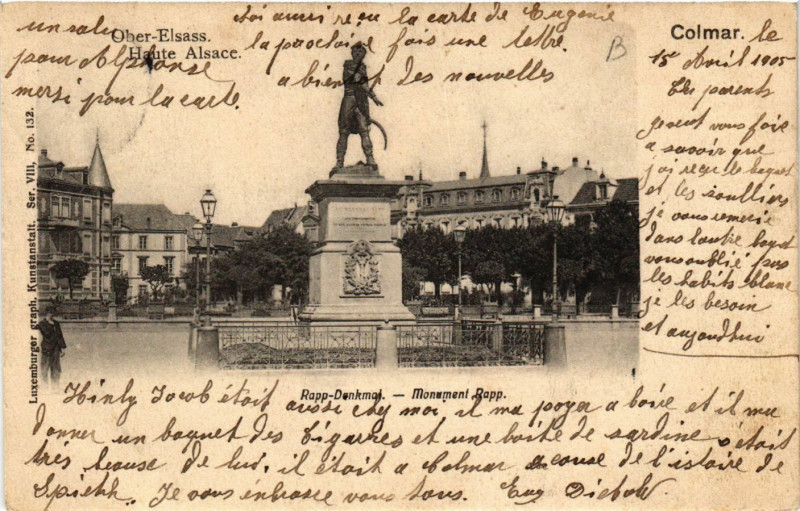 Ober-Elsass.
Haute Alsace.
Colmar. le
15 Avril 1905
Chr parents
je veut vous foie
a savoir que
j'ai reçu le baquet
et les soulliers
je vous remerie
dans lautre baqet
vous oublié pas
les habits blanc
je les besoin
et aujourdhui
Hinly Jacob était aussi chez moi il ma payer a boire et il ma
donner un baquet des Cigarres et une boite de sardine s'était
très beause de lui. il était a Colmar a couse de l'istoire de
Spiehh. Je vous enbrasse vous tous. Eug Diebold
j'ai aussi reçu la carte de Eugenie
la proctaire fois une lettre.
a bientot des nouvelles
un salu
pour Alphonse
mersi pour la carte.
B
Luxemburger graph. Kunstanstalt. Ser. VIII, No. 132.
Rapp-Denkmal. — Monument Rapp.